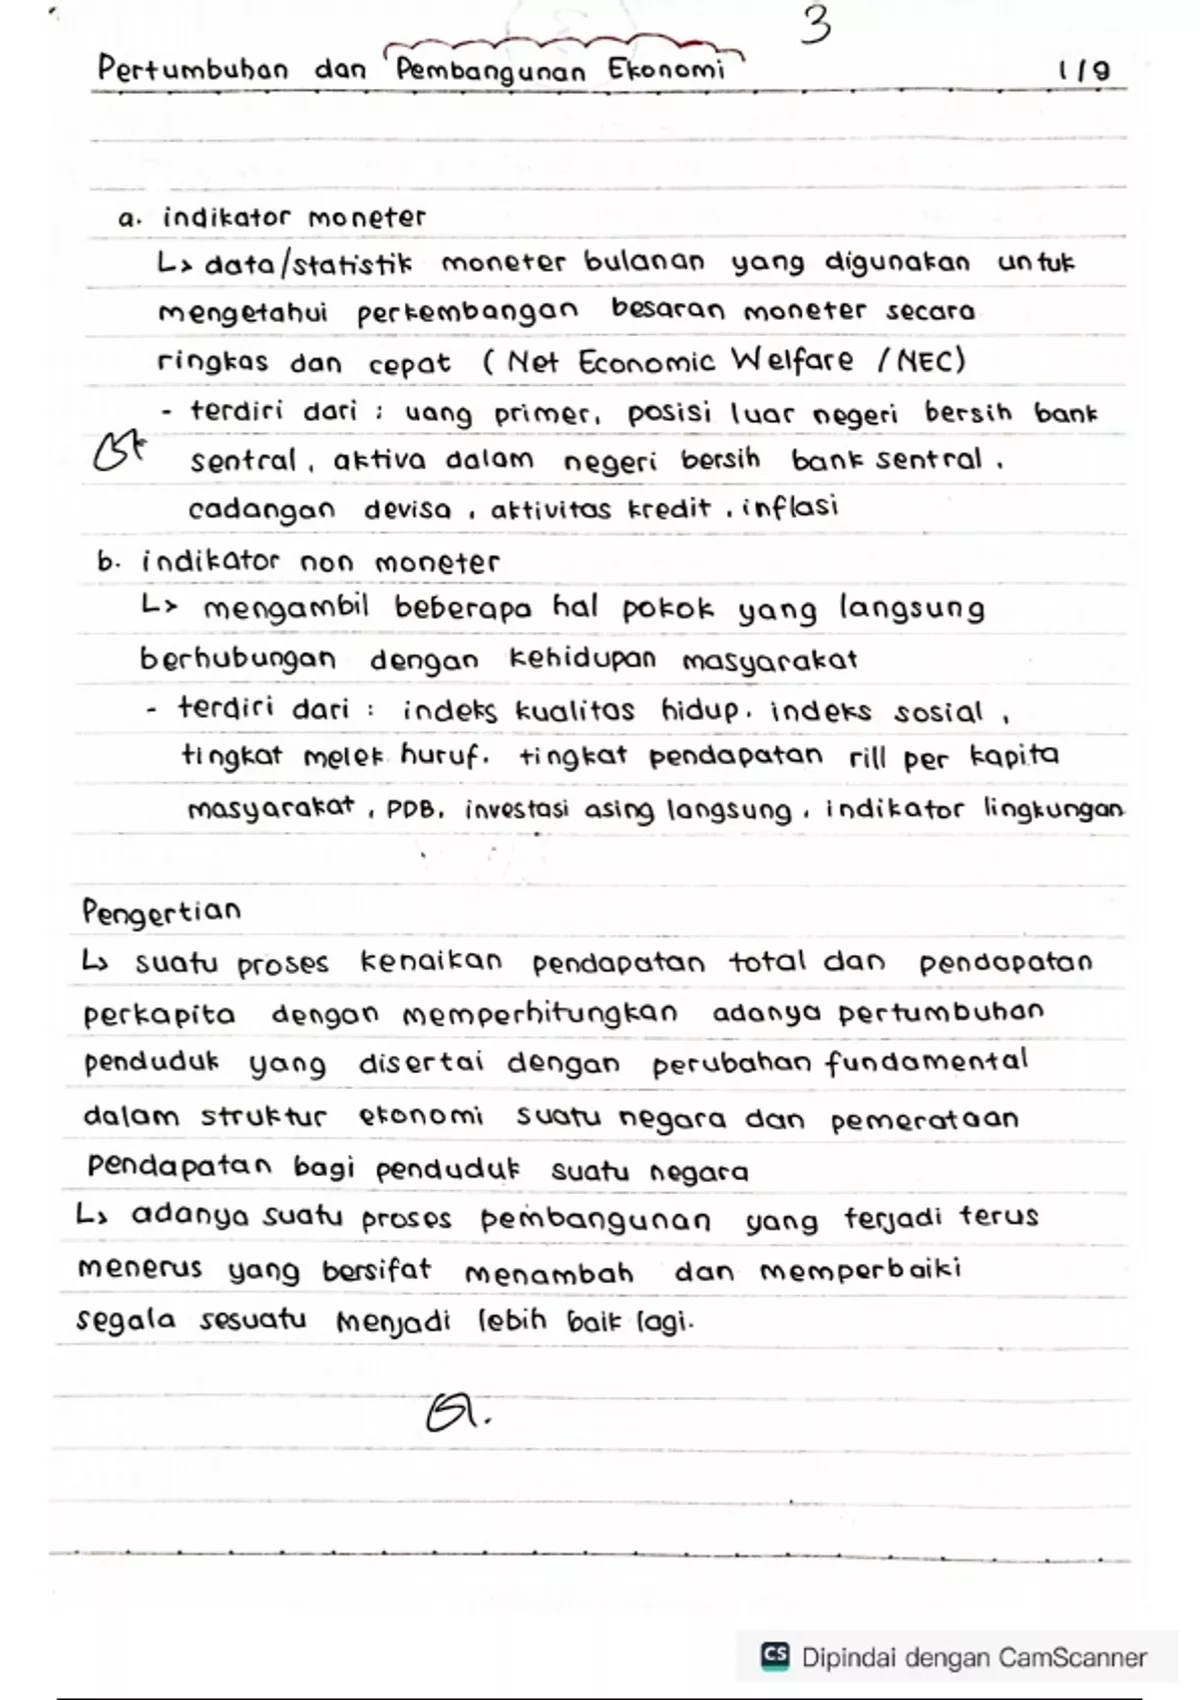 3
Pertumbuhan dan Pembangunan Ekonomi 1/9
a. indikator moneter
↳ data/statistik moneter bulanan yang digunakan untuk
mengetahui perkembangan besaran moneter secara
ringkas dan cepat ( Net Economic Welfare / NEC)
- terdiri dari : uang primer, posisi luar negeri bersih bank
sentral, aktiva dalam negeri bersih bank sentral,
cadangan devisa, aktivitas kredit, inflasi
b. indikator non moneter
↳ mengambil beberapa hal pokok yang langsung
berhubungan dengan kehidupan masyarakat
- terdiri dari : indeks kualitas hidup. indeks sosial,
tingkat melek huruf. tingkat pendapatan rill per kapita
masyarakat, PDB, investasi asing langsung, indikator lingkungan
Pengertian
↳ suatu proses kenaikan pendapatan total dan pendapatan
perkapita dengan memperhitungkan adanya pertumbuhan
penduduk yang disertai dengan perubahan fundamental
dalam struktur ekonomi suatu negara dan pemerataan
pendapatan bagi penduduk suatu negara
↳ adanya suatu proses pembangunan yang terjadi terus
menerus yang bersifat menambah dan memperbaiki
segala sesuatu menjadi lebih baik lagi.
CS Dipindai dengan CamScanner